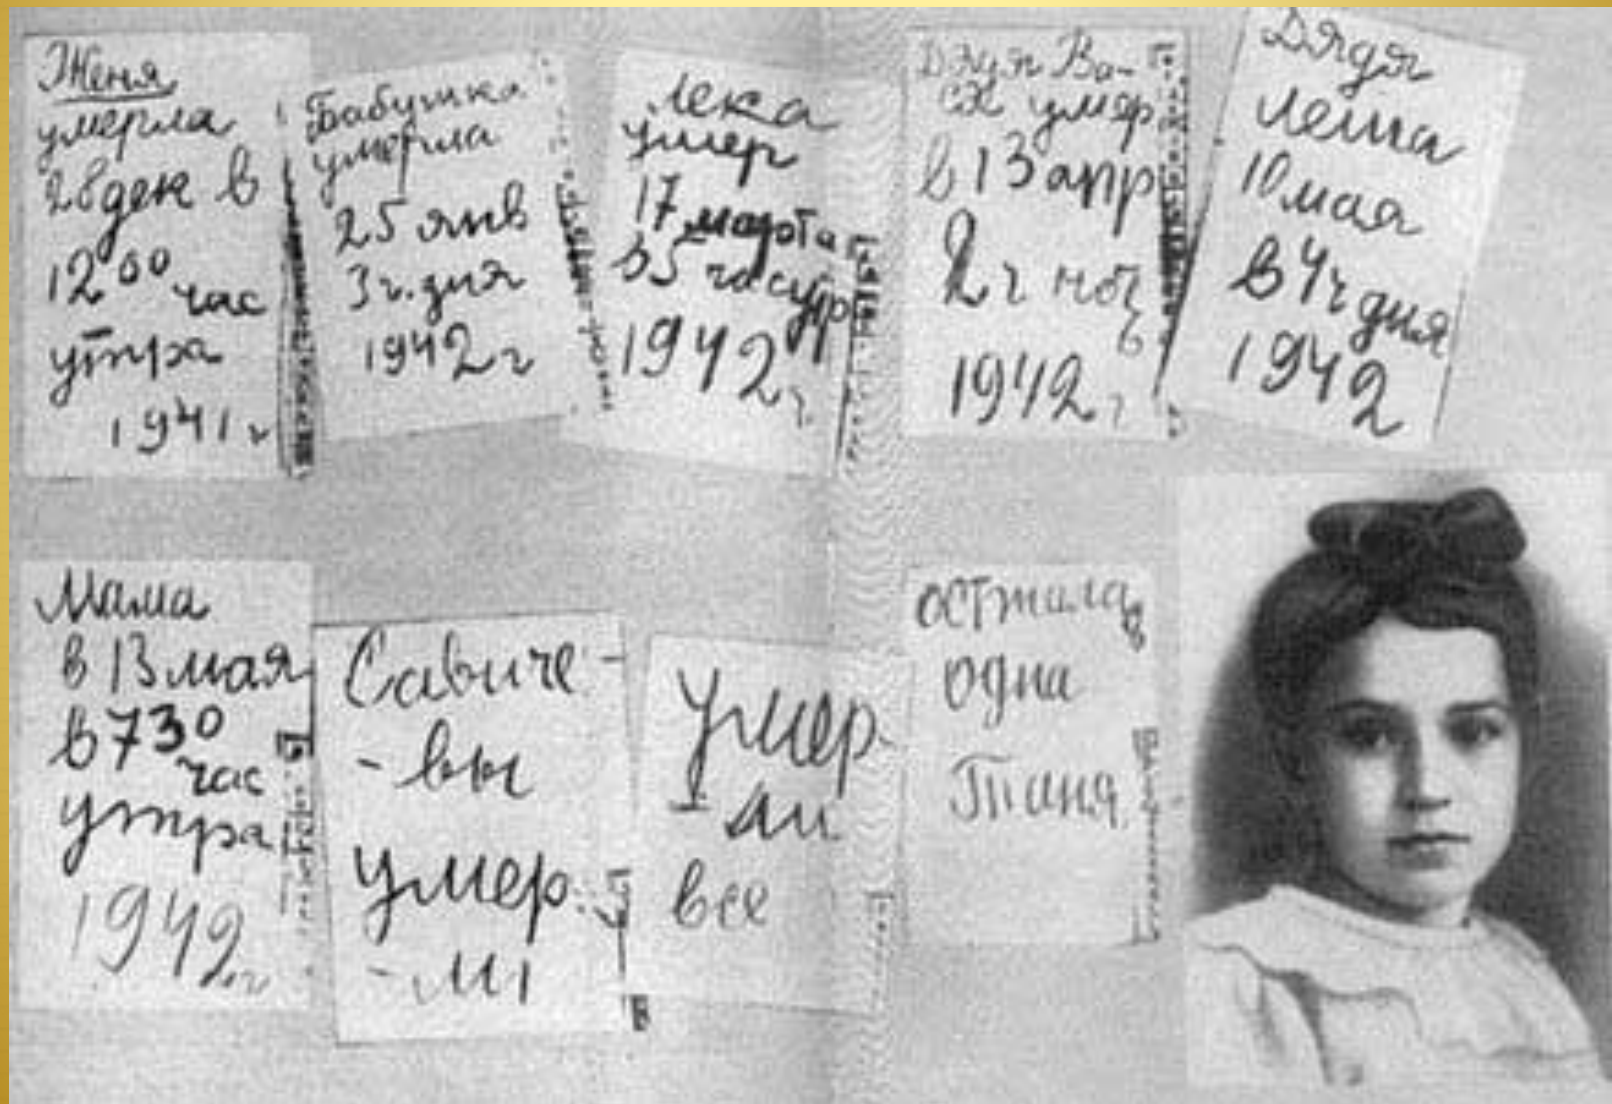 Женя
умерла
28 дек в
12⁰⁰ час
утра
1941 г
Бабушка
умерла
25 янв
3 ч. дня
1942 г
Лека
умер
17 марта
в 5 час утр
1942 г.
Дядя Ва-
ся умер
в 13 апр
2 ч ноч
ь
1942 г
Дядя
Леша
10 мая
в 4 ч дня
1942
Мама
в 13 мая
в 7 30
час
утра
1942 г
Савиче-
-вы
умер
-ли
Умер
-ли
все
осталась
одна
Таня